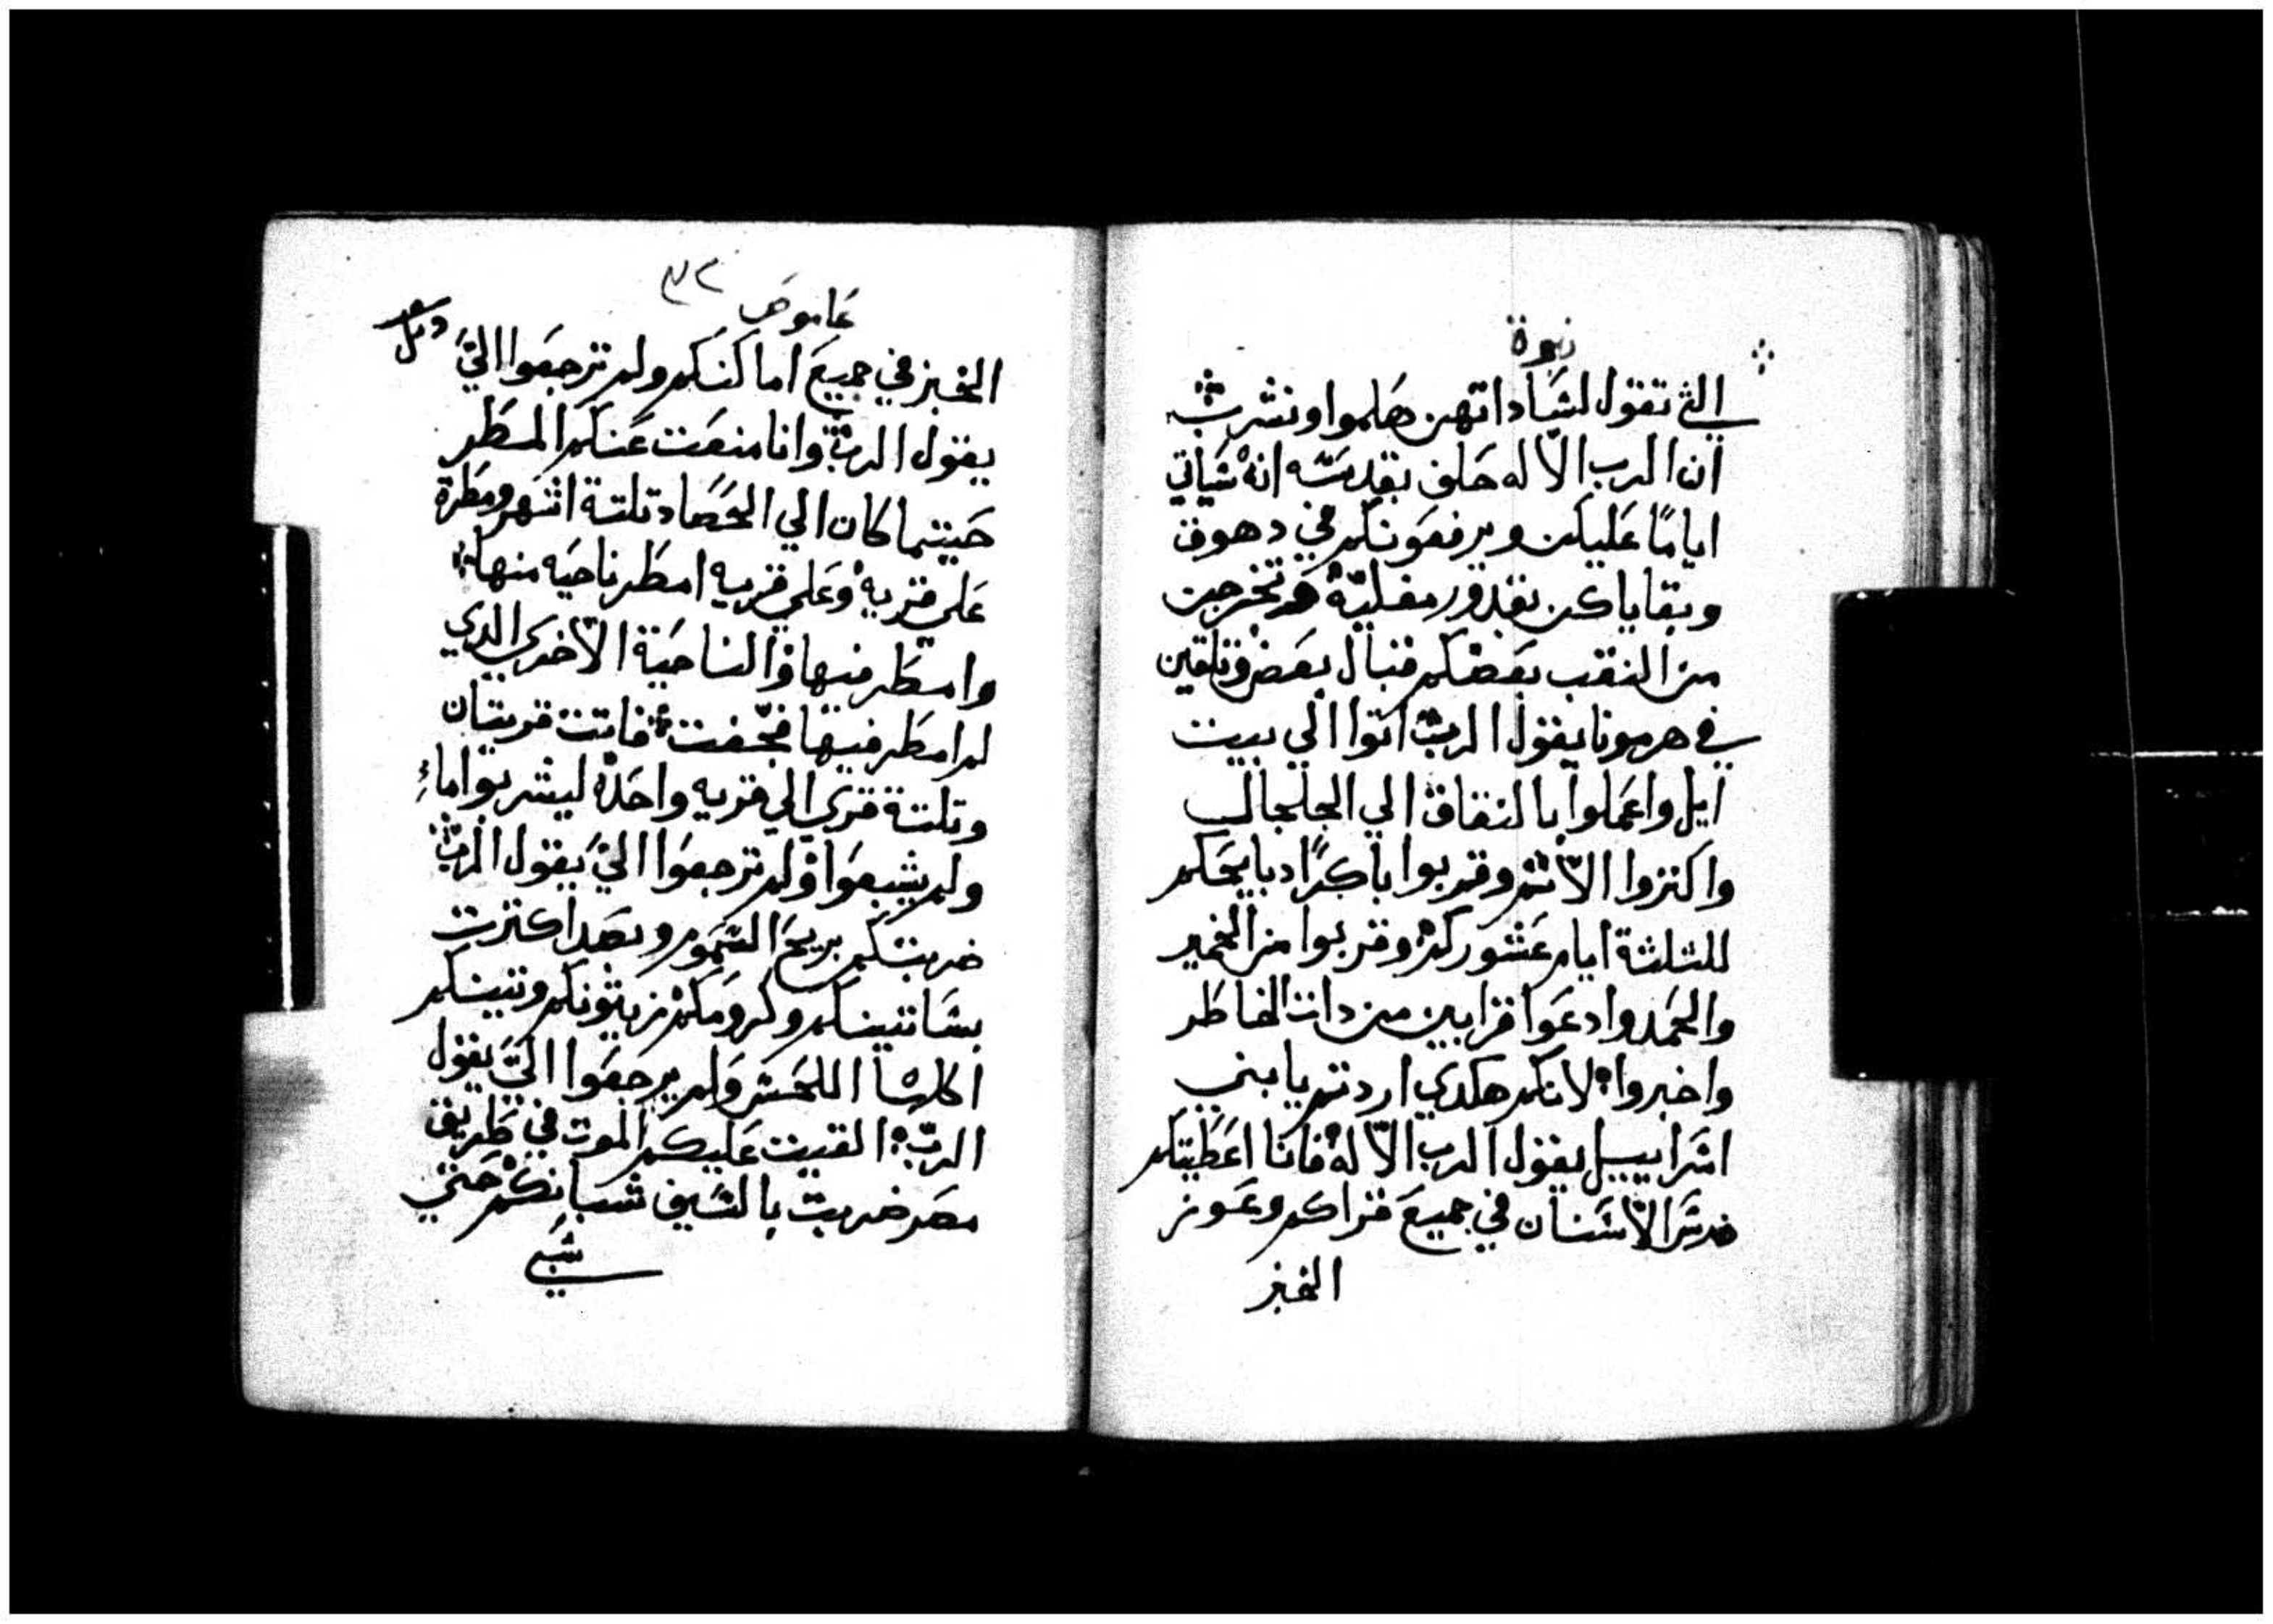 نبوة
التي تقول لسَاداتهن هَلموا ونشرب
ان الرب الاله حَلف بقدسَه انهُ سَياتي
ايامًا عَليكن ويرفعَونكم في دهوق
وبقاياكن بقدور مغليّة هم تخرجن
من النقب بعَضكم قبال بعَض وتلقين
في هرمونا يقول الرب اتوا الي بيت
ايل واعملوا بالنفاق الي الجلجال
واكنزوا الاثم وقربوا باكرًا دبايحكم
للثلثة ايام عَشوركم وقربوا من الخمير
والحمد وادعَوا قرابين من دات الخاطر
واخبروا لانكم هكدي اردتم يا بني
اسَراييل يقول الرب الاله فانا اعَطَيتكم
ضرسَ الاسَنان في جميعَ قراكم وعَوز
الخبز
عَاموص ٣٢
الخبز في جميعَ اماكنكم ولم ترجعَوا اليَّ
يقول الرب وانا منعَت عَنكم المطَر
حَينما كان الي الحَصَاد تلتة اشهر ومطَرة
عَلي قريه وعَلي قريه امطَر ناحيَه منها
وامطَر فيها والناحيَة الاخري الدي
لم امطَر فيها فجفت فاتت قريتان
وتلتة قري الي قريه واحَدة ليشربوا ماءِ
ولم يشبعَوا ولم ترجعَوا اليَّ يقول الرب
ضربتكم بريحَ السَموم وبصَدا كترت
بسَاتينكم وكرومَكم زيتونكم وتينكم
اكلهَا اللحَس ولم يرجعَوا اليَّ يقول
الرب القيت عَليكم الموت في طَريق
مصَر ضربت بالسَيف شبانكم حَتي
سَبي